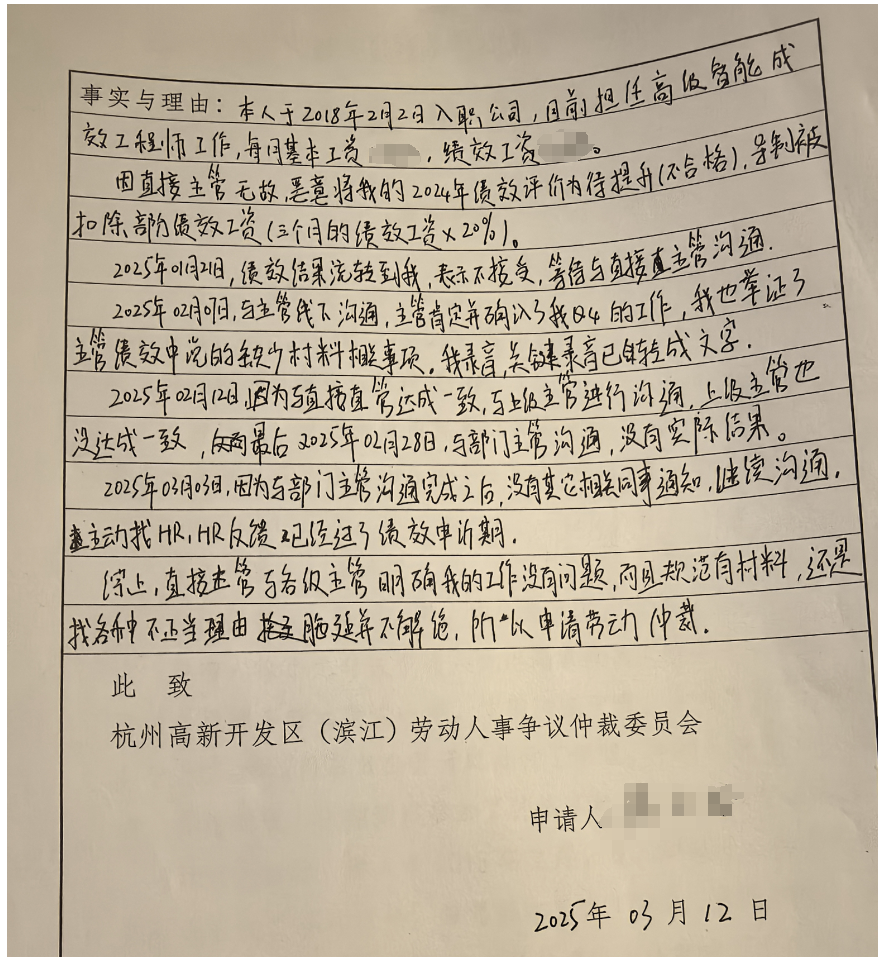 事实与理由：本人于2018年2月2日入职公司，目前担任高级智能成
效工程师工作，每月基本工资，绩效工资。
因直接主管无故，恶意将我的2024年绩效评价为待提升(不合格)，导制被
扣除部份绩效工资(三个月的绩效工资×20%)。
2025年01月21日，绩效结果流转到我，表示不接受，等待与直接主管沟通．
2025年02月07日，与主管线下沟通，主管肯定并确认了我Q4的工作，我也举证了
主管绩效中说的缺少材料相关事项。我录音，关键录音已转成文字．
2025年02月12日，因为与直接直管达成一致，与上级主管进行沟通，上级主管也
没达成一致，最后2025年02月28日，与部门主管沟通，没有实际结果。
2025年03月03日，因为与部门主管沟通完成之后，没有其它相关同事通知，继续沟通，
主动找HR，HR反馈已经过了绩效申诉期．
综上，直接主管与各级主管明确我的工作没有问题，而且规范有材料，还是
找各种不正当理由拖延并不解绝，所以申请劳动仲裁．
此 致
杭州高新开发区（滨江）劳动人事争议仲裁委员会
申请人
2025年 03 月 12 日